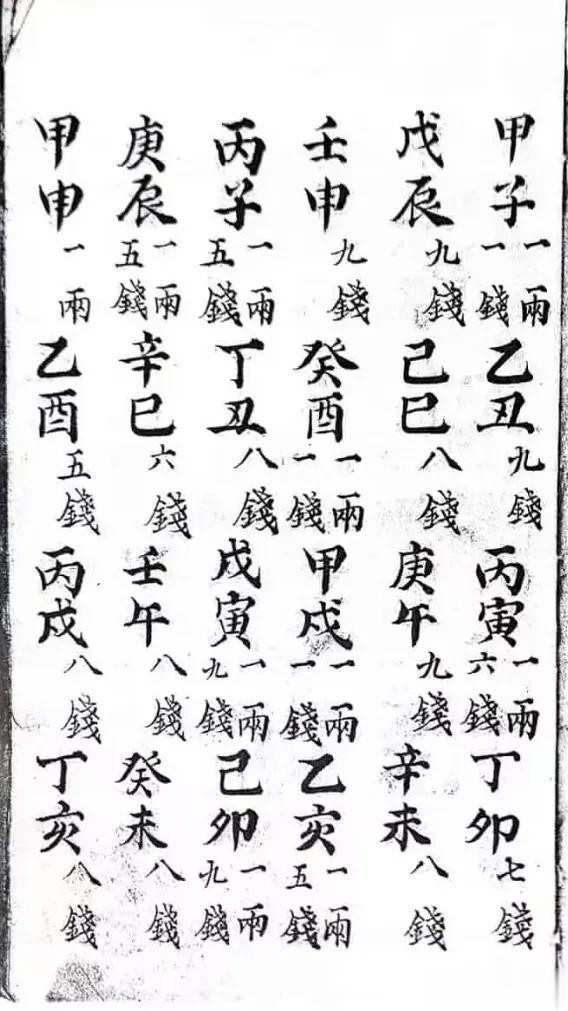 甲子一兩一錢乙丑九錢丙寅一兩六錢丁卯七錢
戊辰九錢己巳八錢庚午九錢辛未八錢
壬申九錢癸酉一兩一錢甲戌一兩一錢乙亥一兩五錢
丙子一兩五錢丁丑八錢戊寅一兩九錢己卯一兩九錢
庚辰一兩五錢辛巳六錢壬午八錢癸未八錢
甲申一兩乙酉五錢丙戌八錢丁亥八錢